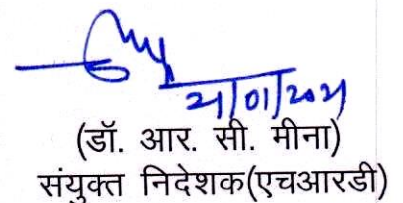 21/01/2021
(डॉ. आर. सी. मीना)
संयुक्त निदेशक(एचआरडी)